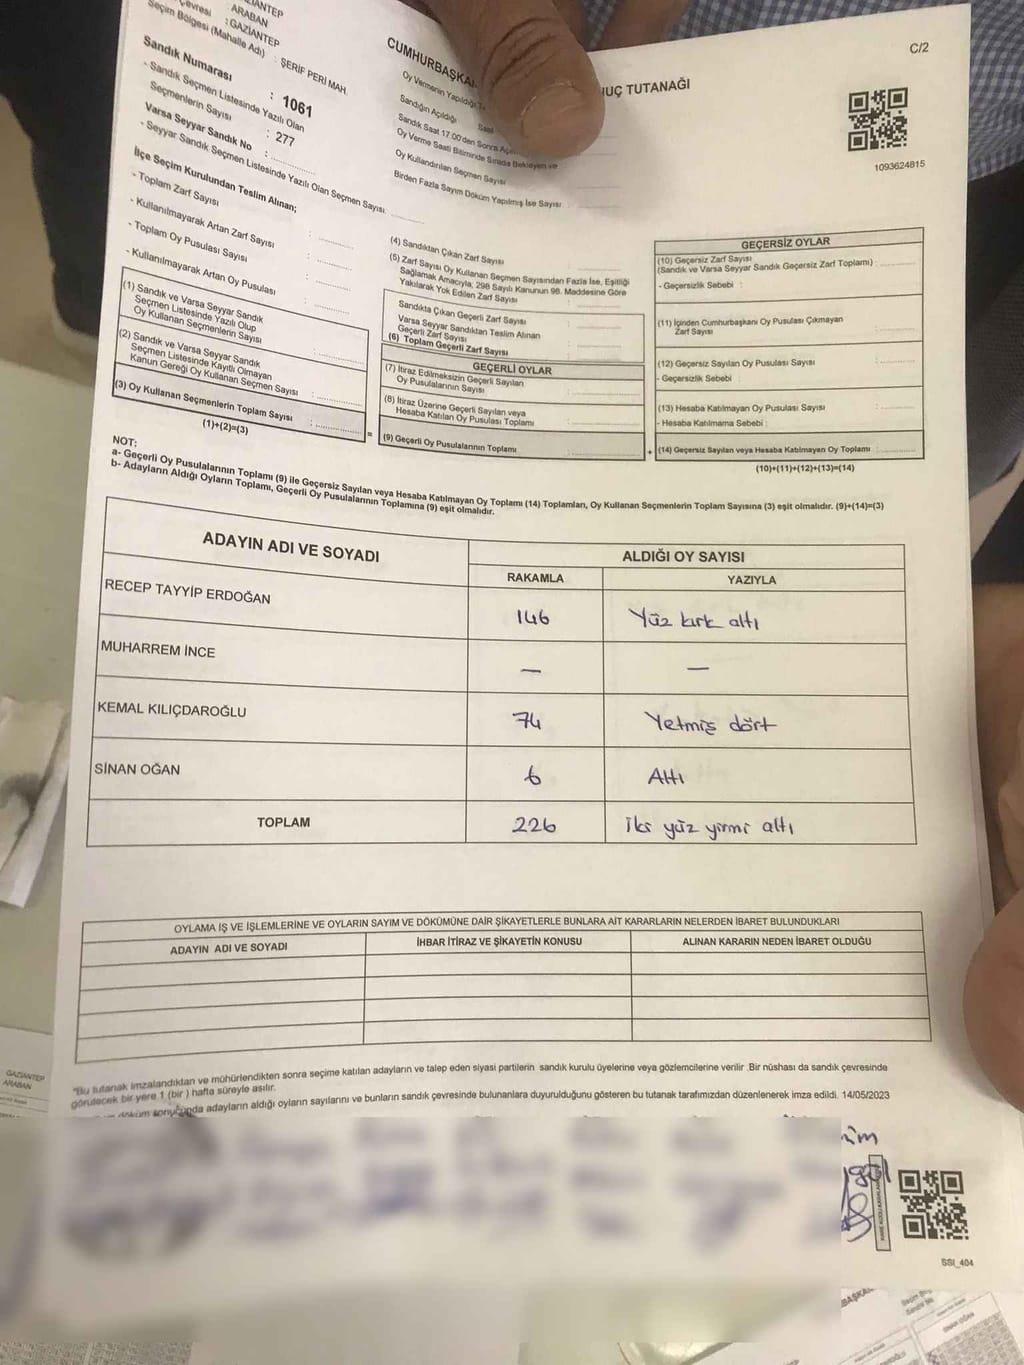 GAZİANTEP
: ARABAN
Çevresi : GAZİANTEP
Seçim Bölgesi (Mahalle Adı) : ŞERİF PERİ MAH.
Sandık Numarası : 1061
- Sandık Seçmen Listesinde Yazılı Olan
Seçmenlerin Sayısı : 277
Varsa Seyyar Sandık No :
- Seyyar Sandık Seçmen Listesinde Yazılı Olan Seçmen Sayısı
İlçe Seçim Kurulundan Teslim Alınan;
- Toplam Zarf Sayısı :
- Kullanılmayarak Artan Zarf Sayısı :
- Toplam Oy Pusulası Sayısı :
- Kullanılmayarak Artan Oy Pusulası :
(1) Sandık ve Varsa Seyyar Sandık
Seçmen Listesinde Yazılı Olup
Oy Kullanan Seçmenlerin Sayısı :
(2) Sandık ve Varsa Seyyar Sandık
Seçmen Listesinde Kayıtlı Olmayan
Kanun Gereği Oy Kullanan Seçmen Sayısı :
(3) Oy Kullanan Seçmenlerin Toplam Sayısı :
(1)+(2)=(3)
CUMHURBAŞKA
UÇ TUTANAĞI
C/2
1093624815
Oy Vermenin Yapıldığı
Sandığın Açıldığı Saat
Sandık Saat 17.00'den Sonra
Oy Verme Saati Bitiminde Sırada Bekleyen ve
Oy Kullandırılan Seçmen Sayısı
Birden Fazla Sayım Döküm Yapılmış İse Sayısı :
(4) Sandıktan Çıkan Zarf Sayısı :
(5) Zarf Sayısı Oy Kullanan Seçmen Sayısından Fazla İse, Eşitliği
Sağlamak Amacıyla, 298 Sayılı Kanunun 98. Maddesine Göre
Yakılarak Yok Edilen Zarf Sayısı :
Sandıkta Çıkan Geçerli Zarf Sayısı :
Varsa Seyyar Sandıktan Teslim Alınan
Geçerli Zarf Sayısı :
(6) Toplam Geçerli Zarf Sayısı :
GEÇERLİ OYLAR
(7) İtiraz Edilmeksizin Geçerli Sayılan
Oy Pusulalarının Sayısı :
(8) İtiraz Üzerine Geçerli Sayılan veya
Hesaba Katılan Oy Pusulası Toplamı :
= (9) Geçerli Oy Pusulalarının Toplamı :
GEÇERSİZ OYLAR
(10) Geçersiz Zarf Sayısı
(Sandık ve Varsa Seyyar Sandık Geçersiz Zarf Toplamı) :
- Geçersizlik Sebebi :
(11) İçinden Cumhurbaşkanı Oy Pusulası Çıkmayan
Zarf Sayısı :
(12) Geçersiz Sayılan Oy Pusulası Sayısı :
- Geçersizlik Sebebi :
(13) Hesaba Katılmayan Oy Pusulası Sayısı :
- Hesaba Katılmama Sebebi :
+ (14) Geçersiz Sayılan veya Hesaba Katılmayan Oy Toplamı :
(10)+(11)+(12)+(13)=(14)
NOT:
a- Geçerli Oy Pusulalarının Toplamı (9) ile Geçersiz Sayılan veya Hesaba Katılmayan Oy Toplamı (14) Toplamları, Oy Kullanan Seçmenlerin Toplam Sayısına (3) eşit olmalıdır. (9)+(14)=(3)
b- Adayların Aldığı Oyların Toplamı, Geçerli Oy Pusulalarının Toplamına (9) eşit olmalıdır.
ADAYIN ADI VE SOYADI ALDIĞI OY SAYISI
RAKAMLA YAZIYLA
RECEP TAYYİP ERDOĞAN 146 Yüz kırk altı
MUHARREM İNCE — —
KEMAL KILIÇDAROĞLU 74 Yetmiş dört
SİNAN OĞAN 6 Altı
TOPLAM 226 İki yüz yirmi altı
OYLAMA İŞ VE İŞLEMLERİNE VE OYLARIN SAYIM VE DÖKÜMÜNE DAİR ŞİKAYETLERLE BUNLARA AİT KARARLARIN NELERDEN İBARET BULUNDUKLARI
ADAYIN ADI VE SOYADI İHBAR İTİRAZ VE ŞİKAYETİN KONUSU ALINAN KARARIN NEDEN İBARET OLDUĞU
*Bu tutanak imzalandıktan ve mühürlendikten sonra seçime katılan adayların ve talep eden siyasi partilerin sandık kurulu üyelerine veya gözlemcilerine verilir .Bir nüshası da sandık çevresinde
görülecek bir yere 1 (bir ) hafta süreyle asılır.
döküm sonucunda adayların aldığı oyların sayılarını ve bunların sandık çevresinde bulunanlara duyurulduğunu gösteren bu tutanak tarafımızdan düzenlenerek imza edildi. 14/05/2023
SSI_404
GAZİANTEP
ARABAN